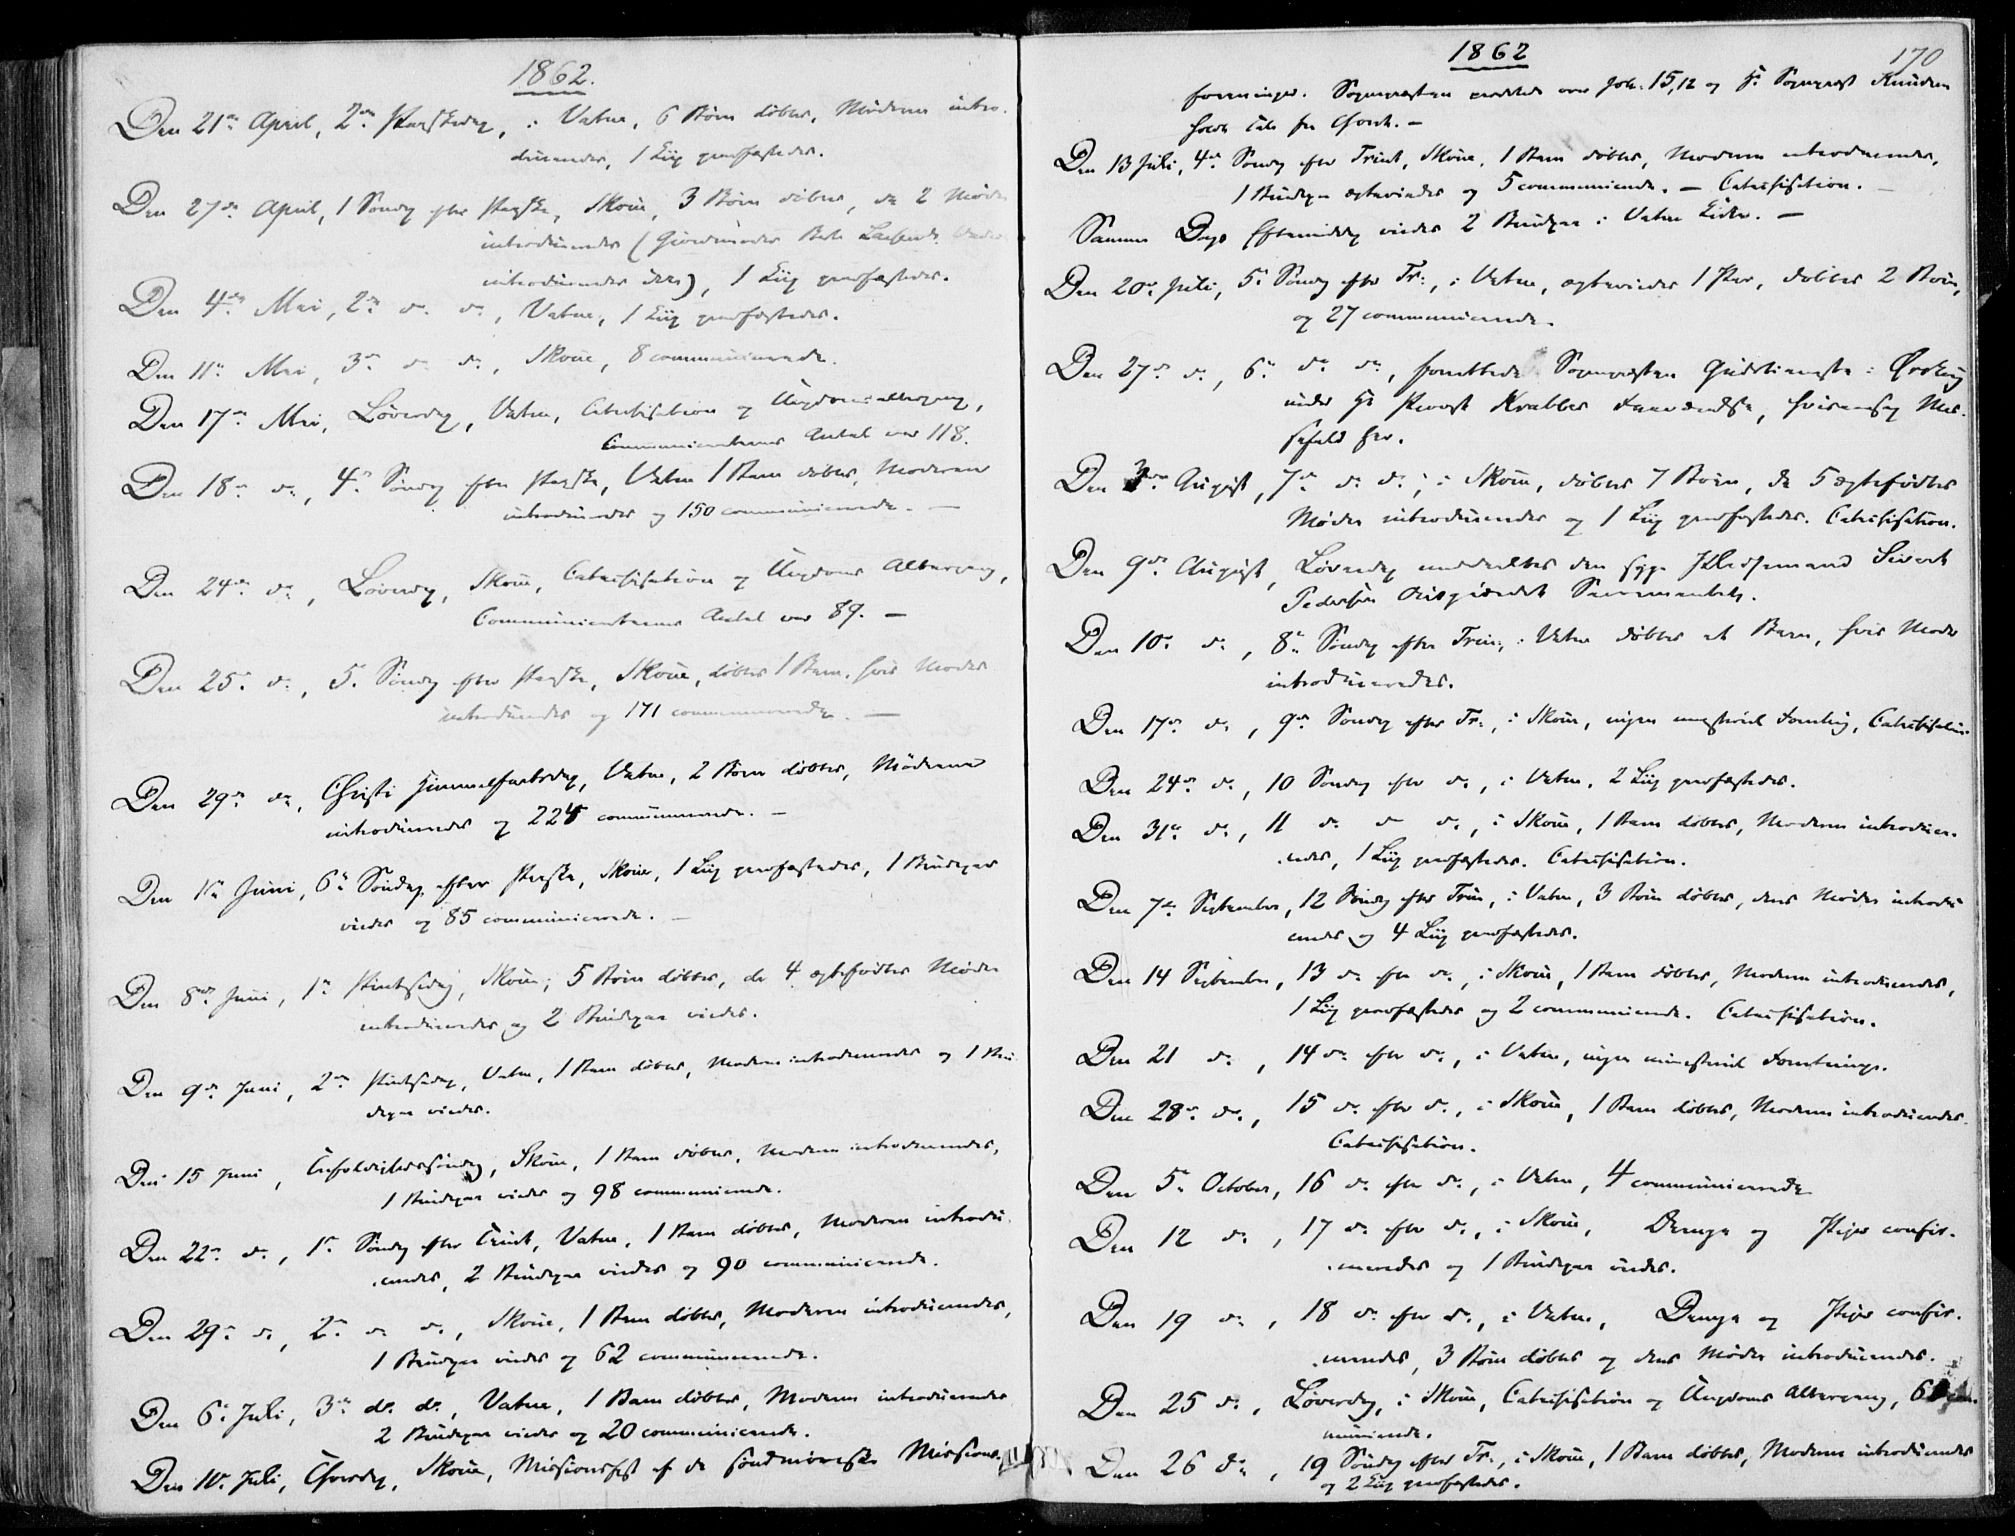 1862.
Den 21de April, 2den Paaskedag, i Vatne, 6 Børn døbtes, Mødrene intro-
duceredes, 1 Liig jordfæstedes.
Den 27de April, 1 Søndag efter Paaske, Skoue, 3 Børn døbtes, de 2 Mødre
introduceredes (Gjordemoder
introduceredes ikke), 1 Liig jordfæstedes.
Den 4de Mai, 2den do. do., Vatne, 1 Liig jordfæstedes.
Den 11te Mai, 3de do. do., Skoue, 8 communicerede.
Den 17de Mai, Løverdag, Vatne, Catechisation og Ungdomsaltergang,
Communicanternes Antal var 118.
Den 18de do., 4de Søndag efter Paaske, Vatne 1 Barn døbtes, Moderen
introduceredes og 150 communicerede. —
Den 24de do., Løverdag, Skoue, Catechisation og Ungdoms Altergang,
Communicanternes Antal var 89. —
Den 25de do., 5. Søndag efter Paaske, Skoue, døbtes 1 Barn, hvis Moder
introduceredes og 171 communicerede. —
Den 29de do., Christi Himmelfartsdag, Vatne, 2 Børn døbtes, Mødrene
introduceredes og 224 communicerede. —
Den 1ste Juni, 6te Søndag efter Paaske, Skoue, 1 Liig jordfæstedes, 1 Brudepar
viedes og 85 communicerede. —
Den 8de Juni, 1ste Pintsedag, Skoue, 5 Børn døbtes, de 4 ægtefødtes Mødre
introduceredes og 2 Brudepar viedes.
Den 9de Juni, 2den Pintsedag, Vatne, 1 Barn døbtes, Moderen introduceredes og 1 Bru-
depar viedes.
Den 15 Juni, Trefoldighedssøndag, Skoue, 1 Barn døbtes, Moderen introduceredes,
1 Brudepar viedes og 98 communicerede.
Den 22de do., 1ste Søndag efter Trinit, Vatne, 1 Barn døbtes, Moderen introdu-
ceredes, 2 Brudepar viedes og 90 communicerede.
Den 29de do., 2den do. do., Skoue, 1 Barn døbtes, Moderen introduceredes,
1 Brudepar viedes og 62 communicerede.
Den 6te Juli, 3de do. do., Vatne, 1 Barn døbtes, Moderen introduceredes
2 Brudepar viedes og 20 communicerede.
Den 10de Juli, Thorsdag, Skoue, Missionsfest af de søndmørske Missions-
1862
170
foreninger. Sognepræsten prædikede over Joh. 15,12 og Hr. Sognepræst Knudsen
holdt Tale fra Chordør. —
Den 13 Juli, 4de Søndag efter Trinit, Skoue, 1 Barn døbtes, Moderen introduceredes,
1 Brudepar ægteviedes og 5 communicerede. — Catechisation. —
Samme Dags Eftermiddag viedes 2 Brudepar i Vatne Kirke. —
Den 20de Juli, 5te Søndag efter Tr:, i Vatne, ægteviedes 1 Par, døbtes 2 Børn,
og 27 communicerede.
Den 27de do., 6te do. do., forrettede Sognepræsten Gudstjeneste i Ørskoug
under Hr. Provst Krabbes Fraværelse, hvisaarsag Mes-
sefald her.
Den 3die August, 7de do. do., i Skoue, døbtes 7 Børn, de 5 ægtefødtes
Mødre introduceredes og 1 Liig jordfæstedes. Catechisation.
Den 9de August, Løverdag meddeltes den syge Pladsemand Sivert
Pedersen Sacramentet.
Den 10de do., 8de Søndag efter Trin:, i Vatne døbtes et Barn, hvis Moder
introduceredes.
Den 17de do., 9de Søndag efter Tr:, i Skoue, ingen ministeriel Forretning, Catechisation
Den 24de do., 10 Søndag efter do., i Vatne, 2 Liig jordfæstedes.
Den 31te do., 11 do. do. do., i Skoue, 1 Barn døbtes, Moderen introducer-
edes, 1 Liig jordfæstedes. Catechisation.
Den 7de September, 12 Søndag efter Trin, i Vatne, 3 Børn døbtes, deres Mødre introdu-
ceredes og 4 Liig jordfæstedes.
Den 14 September, 13 do. efter do., i Skoue, 1 Barn døbtes, Moderen introduceredes,
1 Liig jordfæstedes og 2 communicerede. Catechisation.
Den 21 do., 14 do. efter do., i Vatne, ingen ministeriel Forretninger.
Den 28de do., 15 do. efter do., i Skoue, 1 Barn døbtes, Moderen introduceredes.
Catechisation.
Den 5te October, 16 do. efter do., i Vatne, 4 communicerede
Den 12 do., 17 do. efter do., i Skoue, Drenge og Piger confir-
meredes og 1 Brudepar viedes.
Den 19 do., 18 do. efter do., i Vatne, Drenge og Piger confir-
meredes, 3 Børn døbtes og deres Mødre introduceredes.
Den 25 do., Løverdag, i Skoue, Catechisation og Ungdoms Altergang,
municerede.
Den 26 do., 19 Søndag efter Tr., i Skoue, 1 Barn døbtes, Moderen introduceredes
og 2 Liig jordfæstedes.